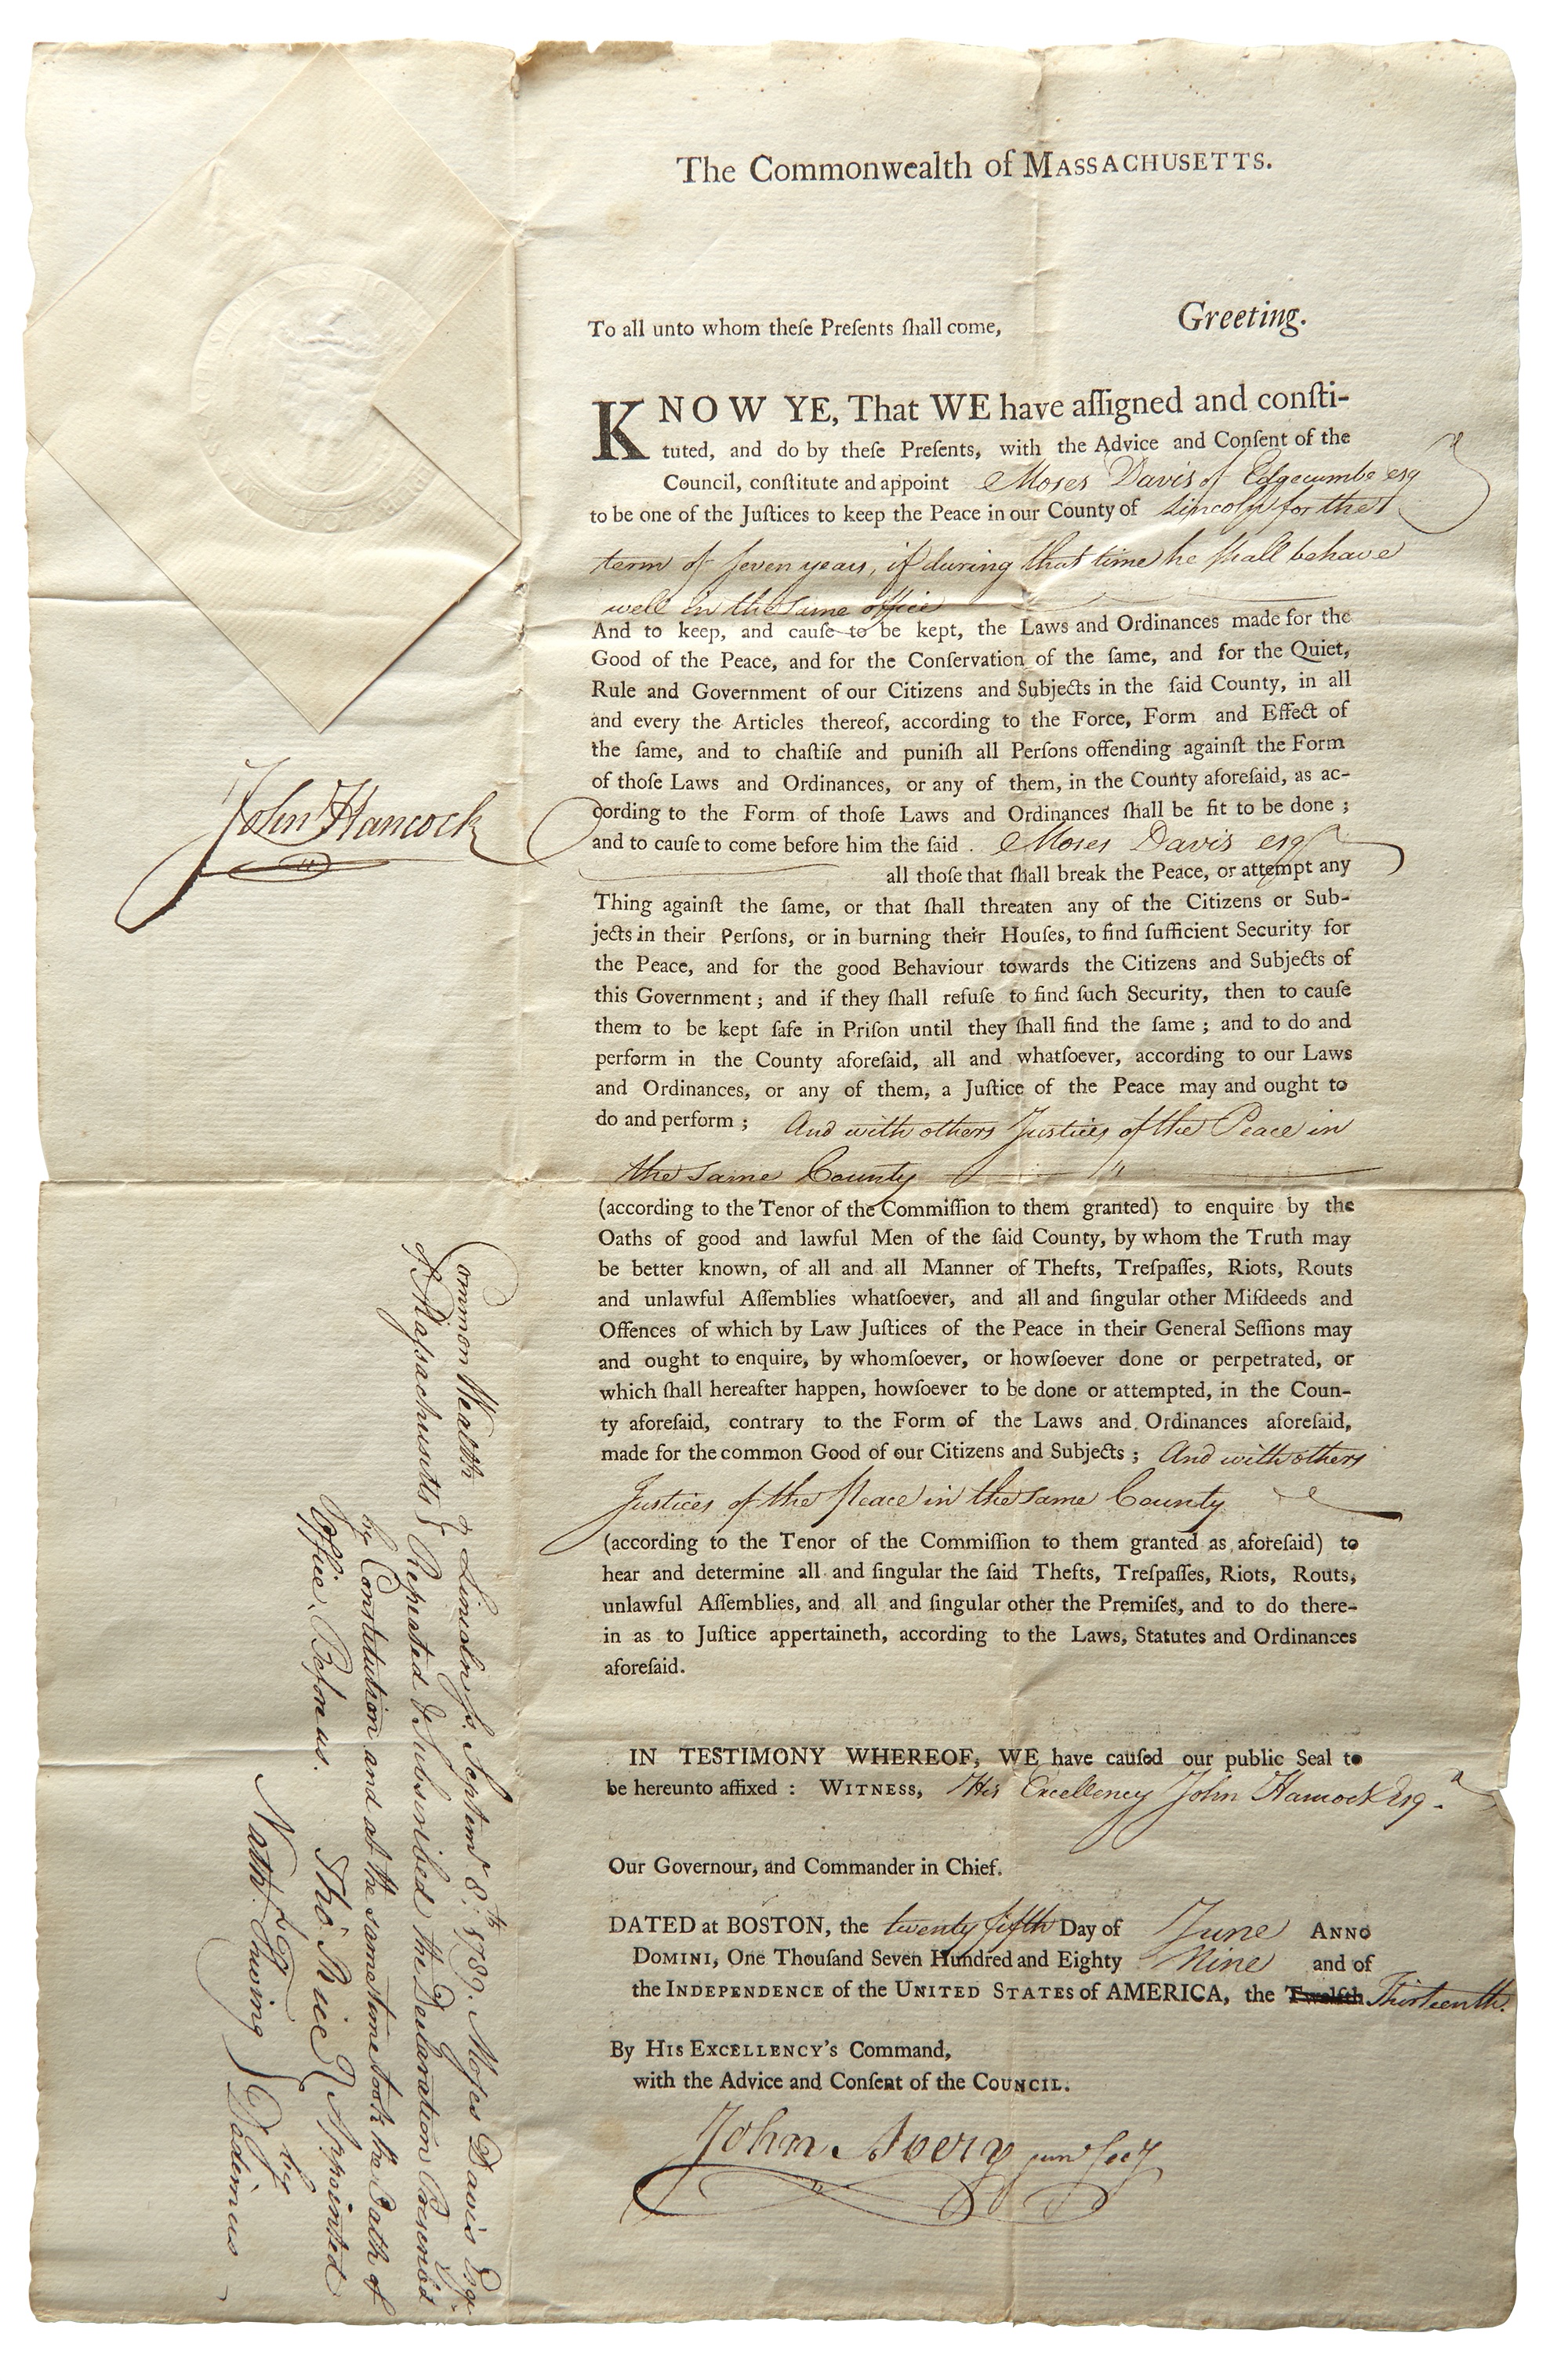 The Commonwealth of MASSACHUSETTS.
To all unto whom theſe Preſents ſhall come, Greeting.
KNOW YE, That WE have aſſigned and conſti-
tuted, and do by theſe Preſents, with the Advice and Conſent of the
Council, conſtitute and appoint Moses Davis of Edgecumbe esqr
to be one of the Juſtices to keep the Peace in our County of Lincoln for the
term of ſeven years, if during that time he ſhall behave
well in the same office
And to keep, and cauſe to be kept, the Laws and Ordinances made for the
Good of the Peace, and for the Conſervation of the ſame, and for the Quiet,
Rule and Government of our Citizens and Subjects in the ſaid County, in all
and every the Articles thereof, according to the Force, Form and Effect of
the ſame, and to chaſtiſe and puniſh all Perſons offending againſt the Form
of thoſe Laws and Ordinances, or any of them, in the County aforeſaid, as ac-
cording to the Form of thoſe Laws and Ordinances ſhall be fit to be done ;
and to cauſe to come before him the ſaid . Moses Davis esqr
all thoſe that ſhall break the Peace, or attempt any
Thing againſt the ſame, or that ſhall threaten any of the Citizens or Sub-
jects in their Perſons, or in burning their Houſes, to find ſufficient Security for
the Peace, and for the good Behaviour towards the Citizens and Subjects of
this Government ; and if they ſhall refuſe to find ſuch Security, then to cauſe
them to be kept ſafe in Priſon until they ſhall find the ſame ; and to do and
perform in the County aforeſaid, all and whatſoever, according to our Laws
and Ordinances, or any of them, a Juſtice of the Peace may and ought to
do and perform ; And with others Justices of the Peace in
the same County
(according to the Tenor of the Commiſſion to them granted) to enquire by the
Oaths of good and lawful Men of the ſaid County, by whom the Truth may
be better known, of all and all Manner of Thefts, Treſpaſſes, Riots, Routs
and unlawful Aſſemblies whatſoever, and all and ſingular other Miſdeeds and
Offences of which by Law Juſtices of the Peace in their General Seſſions may
and ought to enquire, by whomſoever, or howſoever done or perpetrated, or
which ſhall hereafter happen, howſoever to be done or attempted, in the Coun-
ty aforeſaid, contrary to the Form of the Laws and Ordinances aforeſaid,
made for the common Good of our Citizens and Subjects ; And with others
Justices of the Peace in the same County
(according to the Tenor of the Commiſſion to them granted as aforeſaid) to
hear and determine all and ſingular the ſaid Thefts, Treſpaſſes, Riots, Routs,
unlawful Aſſemblies, and all and ſingular other the Premiſes, and to do there-
in as to Juſtice appertaineth, according to the Laws, Statutes and Ordinances
aforeſaid.
IN TESTIMONY WHEREOF, WE have cauſed our public Seal to
be hereunto affixed : WITNESS, His Excellency John Hancock Esqr.
Our Governour, and Commander in Chief.
DATED at BOSTON, the twenty fifth Day of June ANNO
DOMINI, One Thouſand Seven Hundred and Eighty Nine and of
the INDEPENDENCE of the UNITED STATES of AMERICA, the Twelfth Thirteenth.
By HIS EXCELLENCY'S Command,
with the Advice and Conſent of the COUNCIL.
John Avery junr Secy
John Hancock
Common Wealth } Lincoln ſs. Septemr 8th. 1789. Moſes Davis Esqr.
of Maſsachusetts } Repeated & Subscribed the Declaration Prescribed
by Constitution and at the same time took the Oath of
Office. Before us.
Tho. Rice } Appointed
Nathl. Thwing } by Dedimus